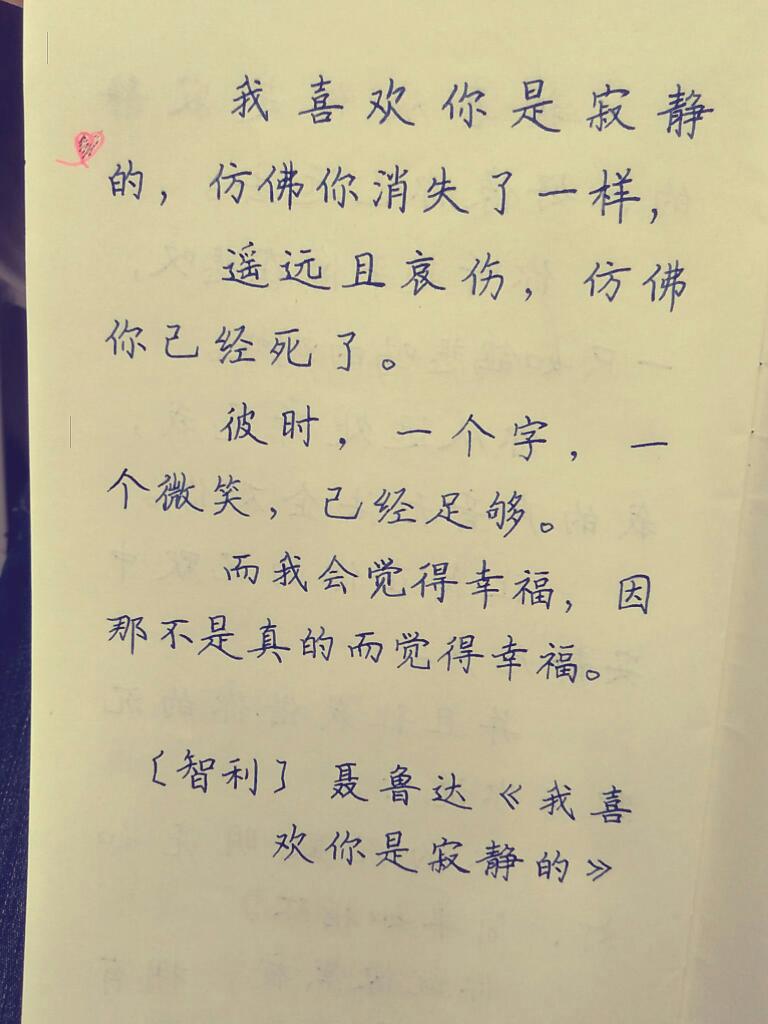 我喜欢你是寂静
的，仿佛你消失了一样，
遥远且哀伤，仿佛
你已经死了。
彼时，一个字，一
个微笑，已经足够。
而我会觉得幸福，因
那不是真的而觉得幸福。
〔智利〕聂鲁达《我喜
欢你是寂静的》